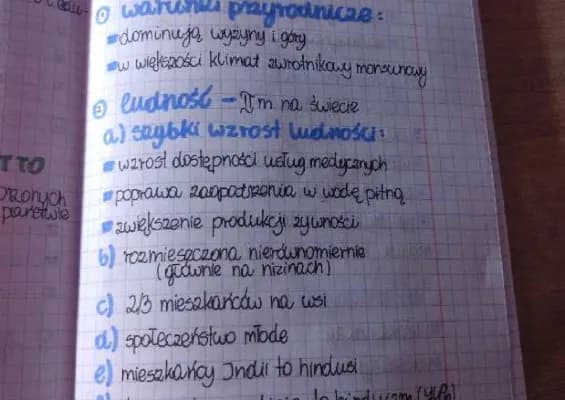 ① warunki przyrodnicze:
dominują wyżyny i góry
w większości klimat zwrotnikowy monsunowy
② ludność – II m na świecie
a) szybki wzrost ludności:
TTO
wzrost dostępności usług medycznych
poprawa zaopatrzenia w wodę pitną
państwie
zwiększenie produkcji żywności
b) rozmieszczona nierównomiernie
(głównie na nizinach)
c) 2/3 mieszkańców na wsi
d) społeczeństwo młode
e) mieszkańcy Indii to hindusi